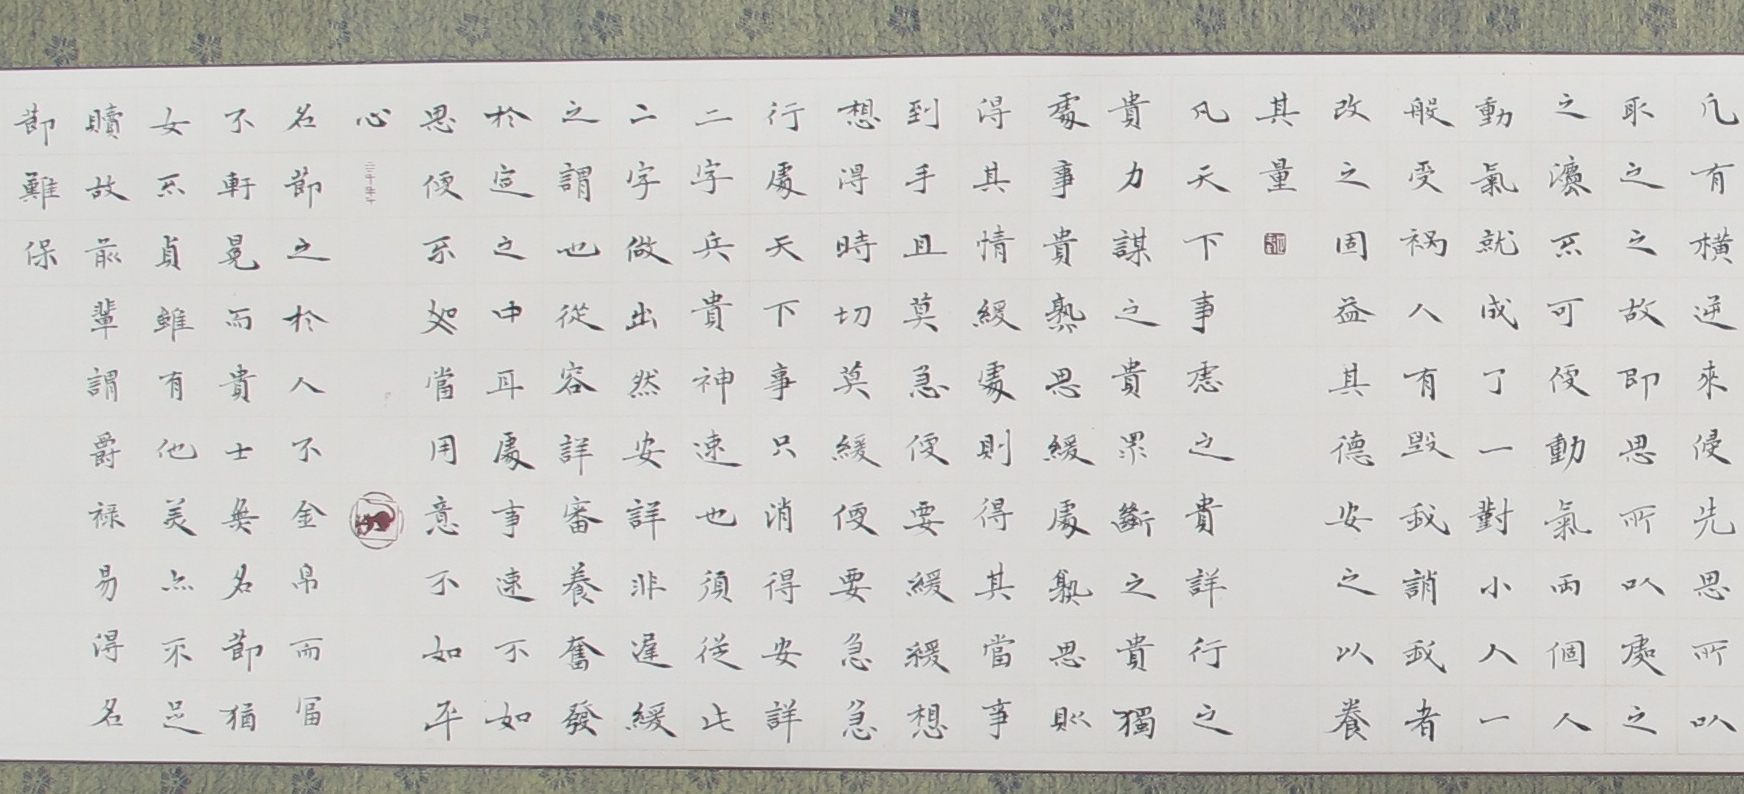 凡有橫逆來侵先思所以
取之之故即思所以處之
之濃不可便動氣兩個人
動氣就成了一對小人一
般受祸人有毁我誚我者
改之固益其德安之以養
其量
凡天下事慮之貴詳行之
貴力謀之貴眾斷之貴獨
處事貴熟思緩處熟思則
得其情緩處則得其當事
到手且莫急便要緩緩想
想得時切莫緩便要急急
行處天下事只消得安詳
二字兵貴神速也須從此
二字做出然安詳非遲緩
之謂也從容詳審養奮發
於定之中耳處事速不如
思便不如當用意不如平
心
名節之於人不金帛而富
不軒冕而貴士無名節猶
女不貞雖有他美亦不足
贖故前輩謂爵祿易得名
節難保